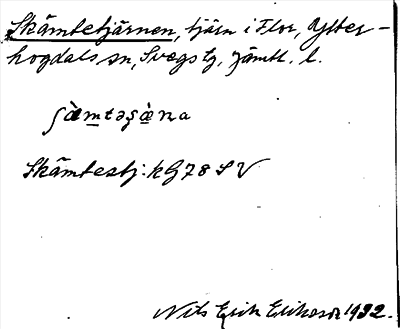 Skämtetjärnen, tjärn i Flor, Ytter-
hogdals sn, Svegs tg, Jämtl. l.
ʃàmtəʂæ̀na
Skämtestj: kG78 SV
Nils Erik Eriksson 1932.